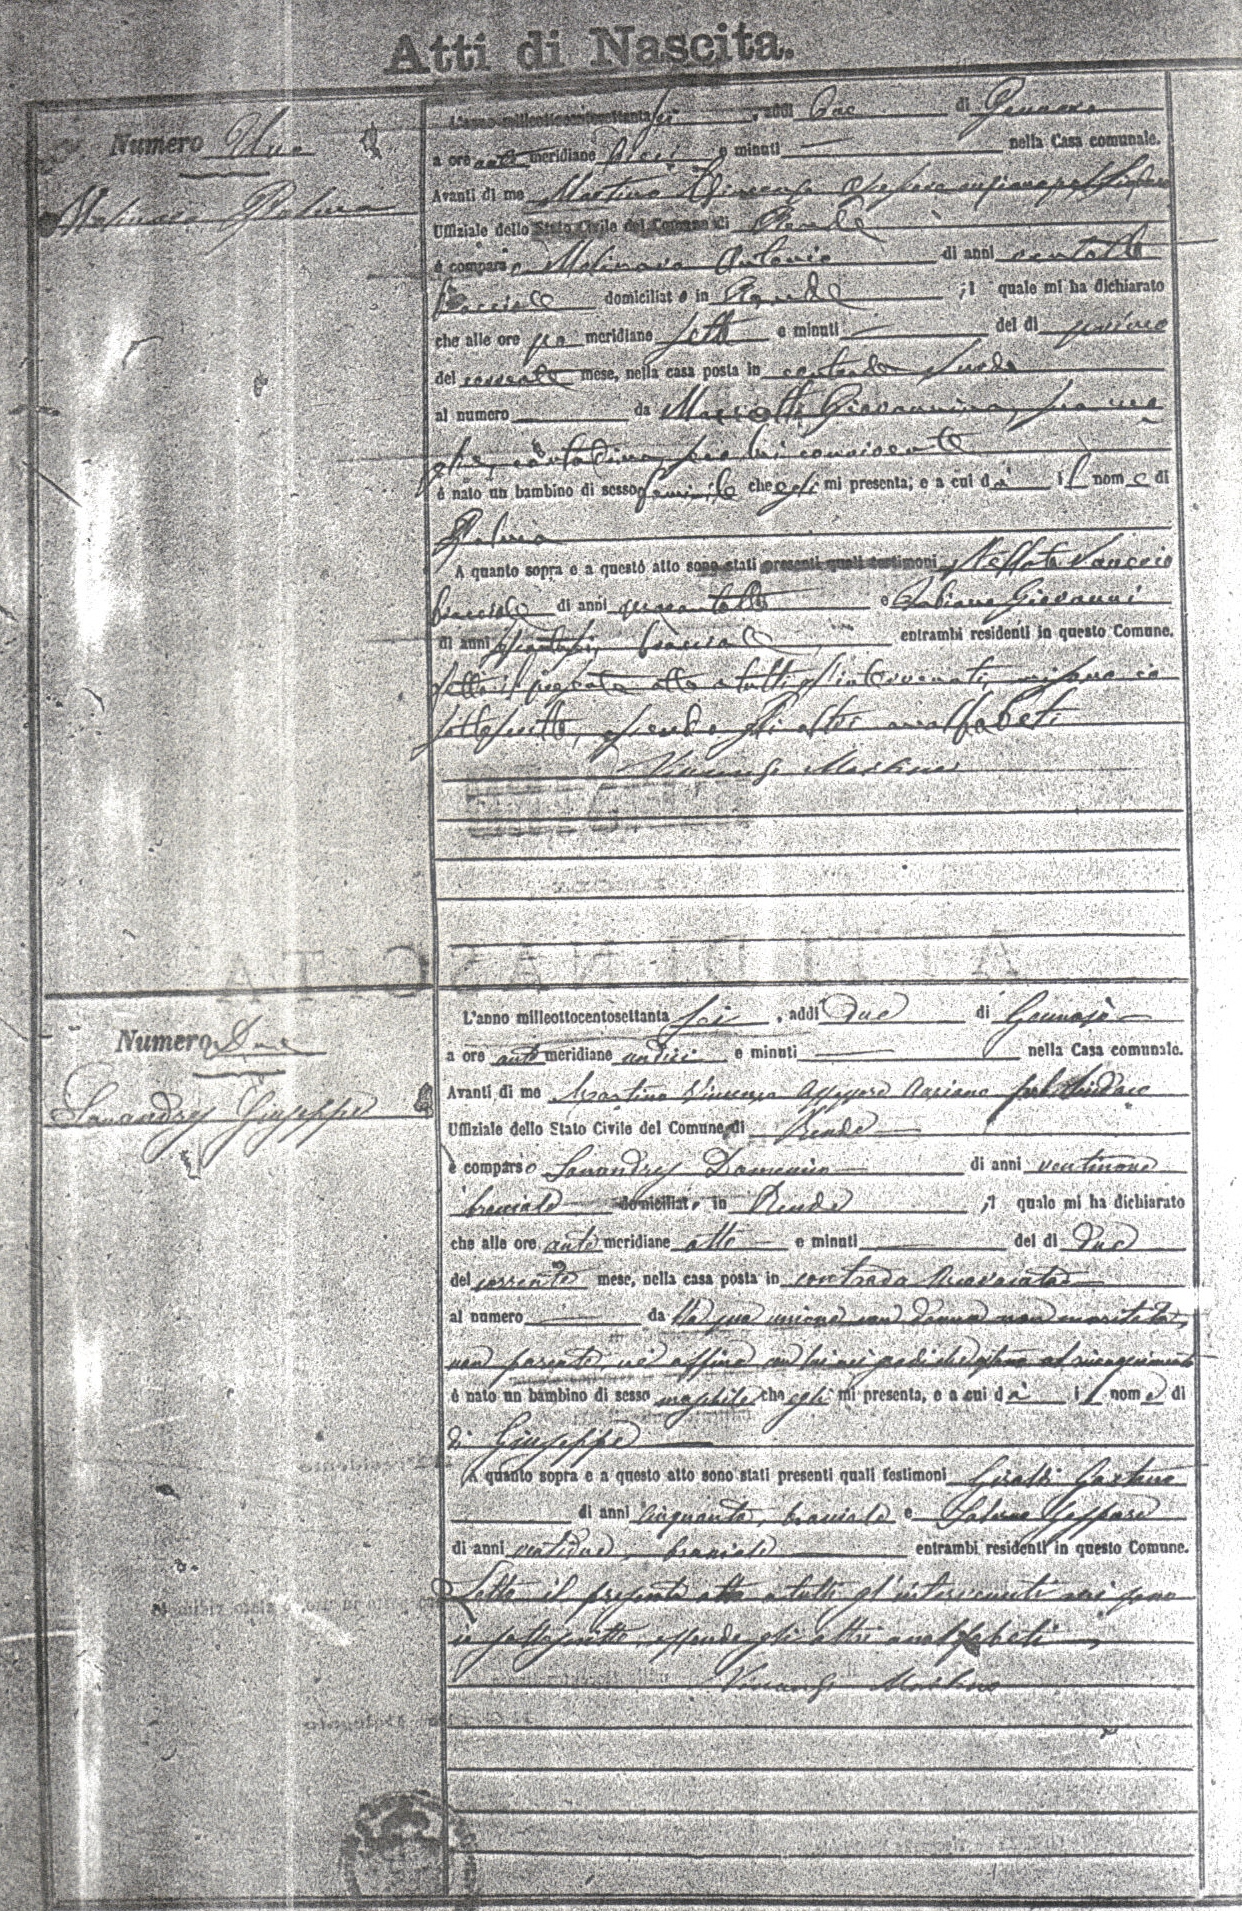 Atti di Nascita.
Numero Uno
Molinaro Palma
L'anno milleottocentosettanta sei, addì Due di Gennaro
a ore ante meridiane dieci e minuti nella Casa comunale.
Avanti di me Martino Vincenzo
Uffiziale dello Stato Civile del Comune di Rende
è comparso Molinaro Antonio di anni ventotto
bracciale domiciliato in Rende, il quale mi ha dichiarato
che alle ore meridiane sette e minuti del dì primo
del corrente mese, nella casa posta in contrada
al numero da Giovannina, sua mo
glie, contadina, seco lui convivente
è nato un bambino di sesso feminile che egli mi presenta, e a cui dà il nome di
Palma
A quanto sopra e a questo atto sono stati presenti quali testimoni
bracciale di anni e Giovanni
di anni bracciale entrambi residenti in questo Comune.
Letto il presente atto a tutti gl'intervenuti, mi sono io
sottoscritto, essendo gli altri analfabeti
Vincenzo Martino
ATTI DI NASCITA
Numero Due
Sanandres Giuseppe
L'anno milleottocentosettanta sei, addì Due di Gennajo
a ore ante meridiane undici e minuti nella Casa comunale.
Avanti di me Martino Vincenzo Assessore Anziano pel Sindaco
Uffiziale dello Stato Civile del Comune di Rende
è comparso Sanandres Domenico di anni ventinove
bracciale domiciliato in Rende, il quale mi ha dichiarato
che alle ore ante meridiane otto e minuti del dì Due
del corrente mese, nella casa posta in contrada
al numero da Da sua unione con donna non maritata,
non parente, nè affine con lui nei gradi che ostano al riconoscimento
è nato un bambino di sesso maschile che egli mi presenta, e a cui dà il nome di
di Giuseppe
A quanto sopra e a questo atto sono stati presenti quali testimoni Giraldi Gaetano
di anni cinquanta, bracciale e Salerno Gaspare
di anni ventidue, bracciale entrambi residenti in questo Comune.
Letto il presente atto a tutti gl'intervenuti mi sono
io sottoscritto, essendo gli altri analfabeti
Vincenzo Martino